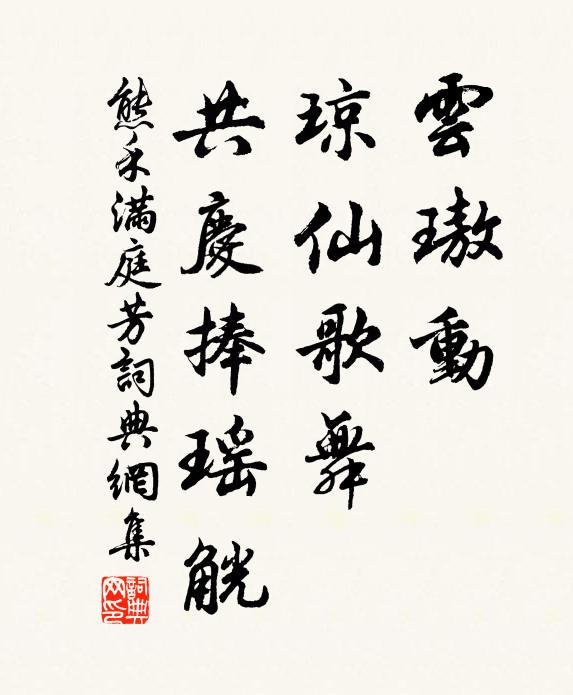 雲璈動
琼仙歌舞
共慶捧瑶觥
熊禾滿庭芳詞典網集
詞典网印